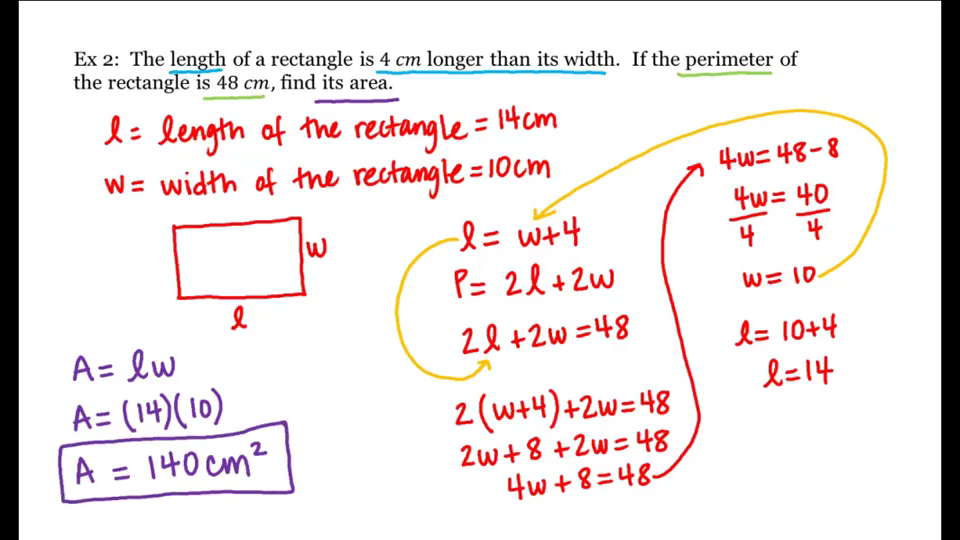 Ex 2: The length of a rectangle is 4 cm longer than its width. If the perimeter of
the rectangle is 48 cm, find its area.
l = length of the rectangle = 14cm
w = width of the rectangle = 10cm
w
l
A = lw
A = (14)(10)
A = 140 cm²
l = w+4
P = 2l + 2w
2l + 2w = 48
2(w+4) + 2w = 48
2w + 8 + 2w = 48
4w + 8 = 48
4w = 48 - 8
4w = 40
4 4
w = 10
l = 10+4
l = 14